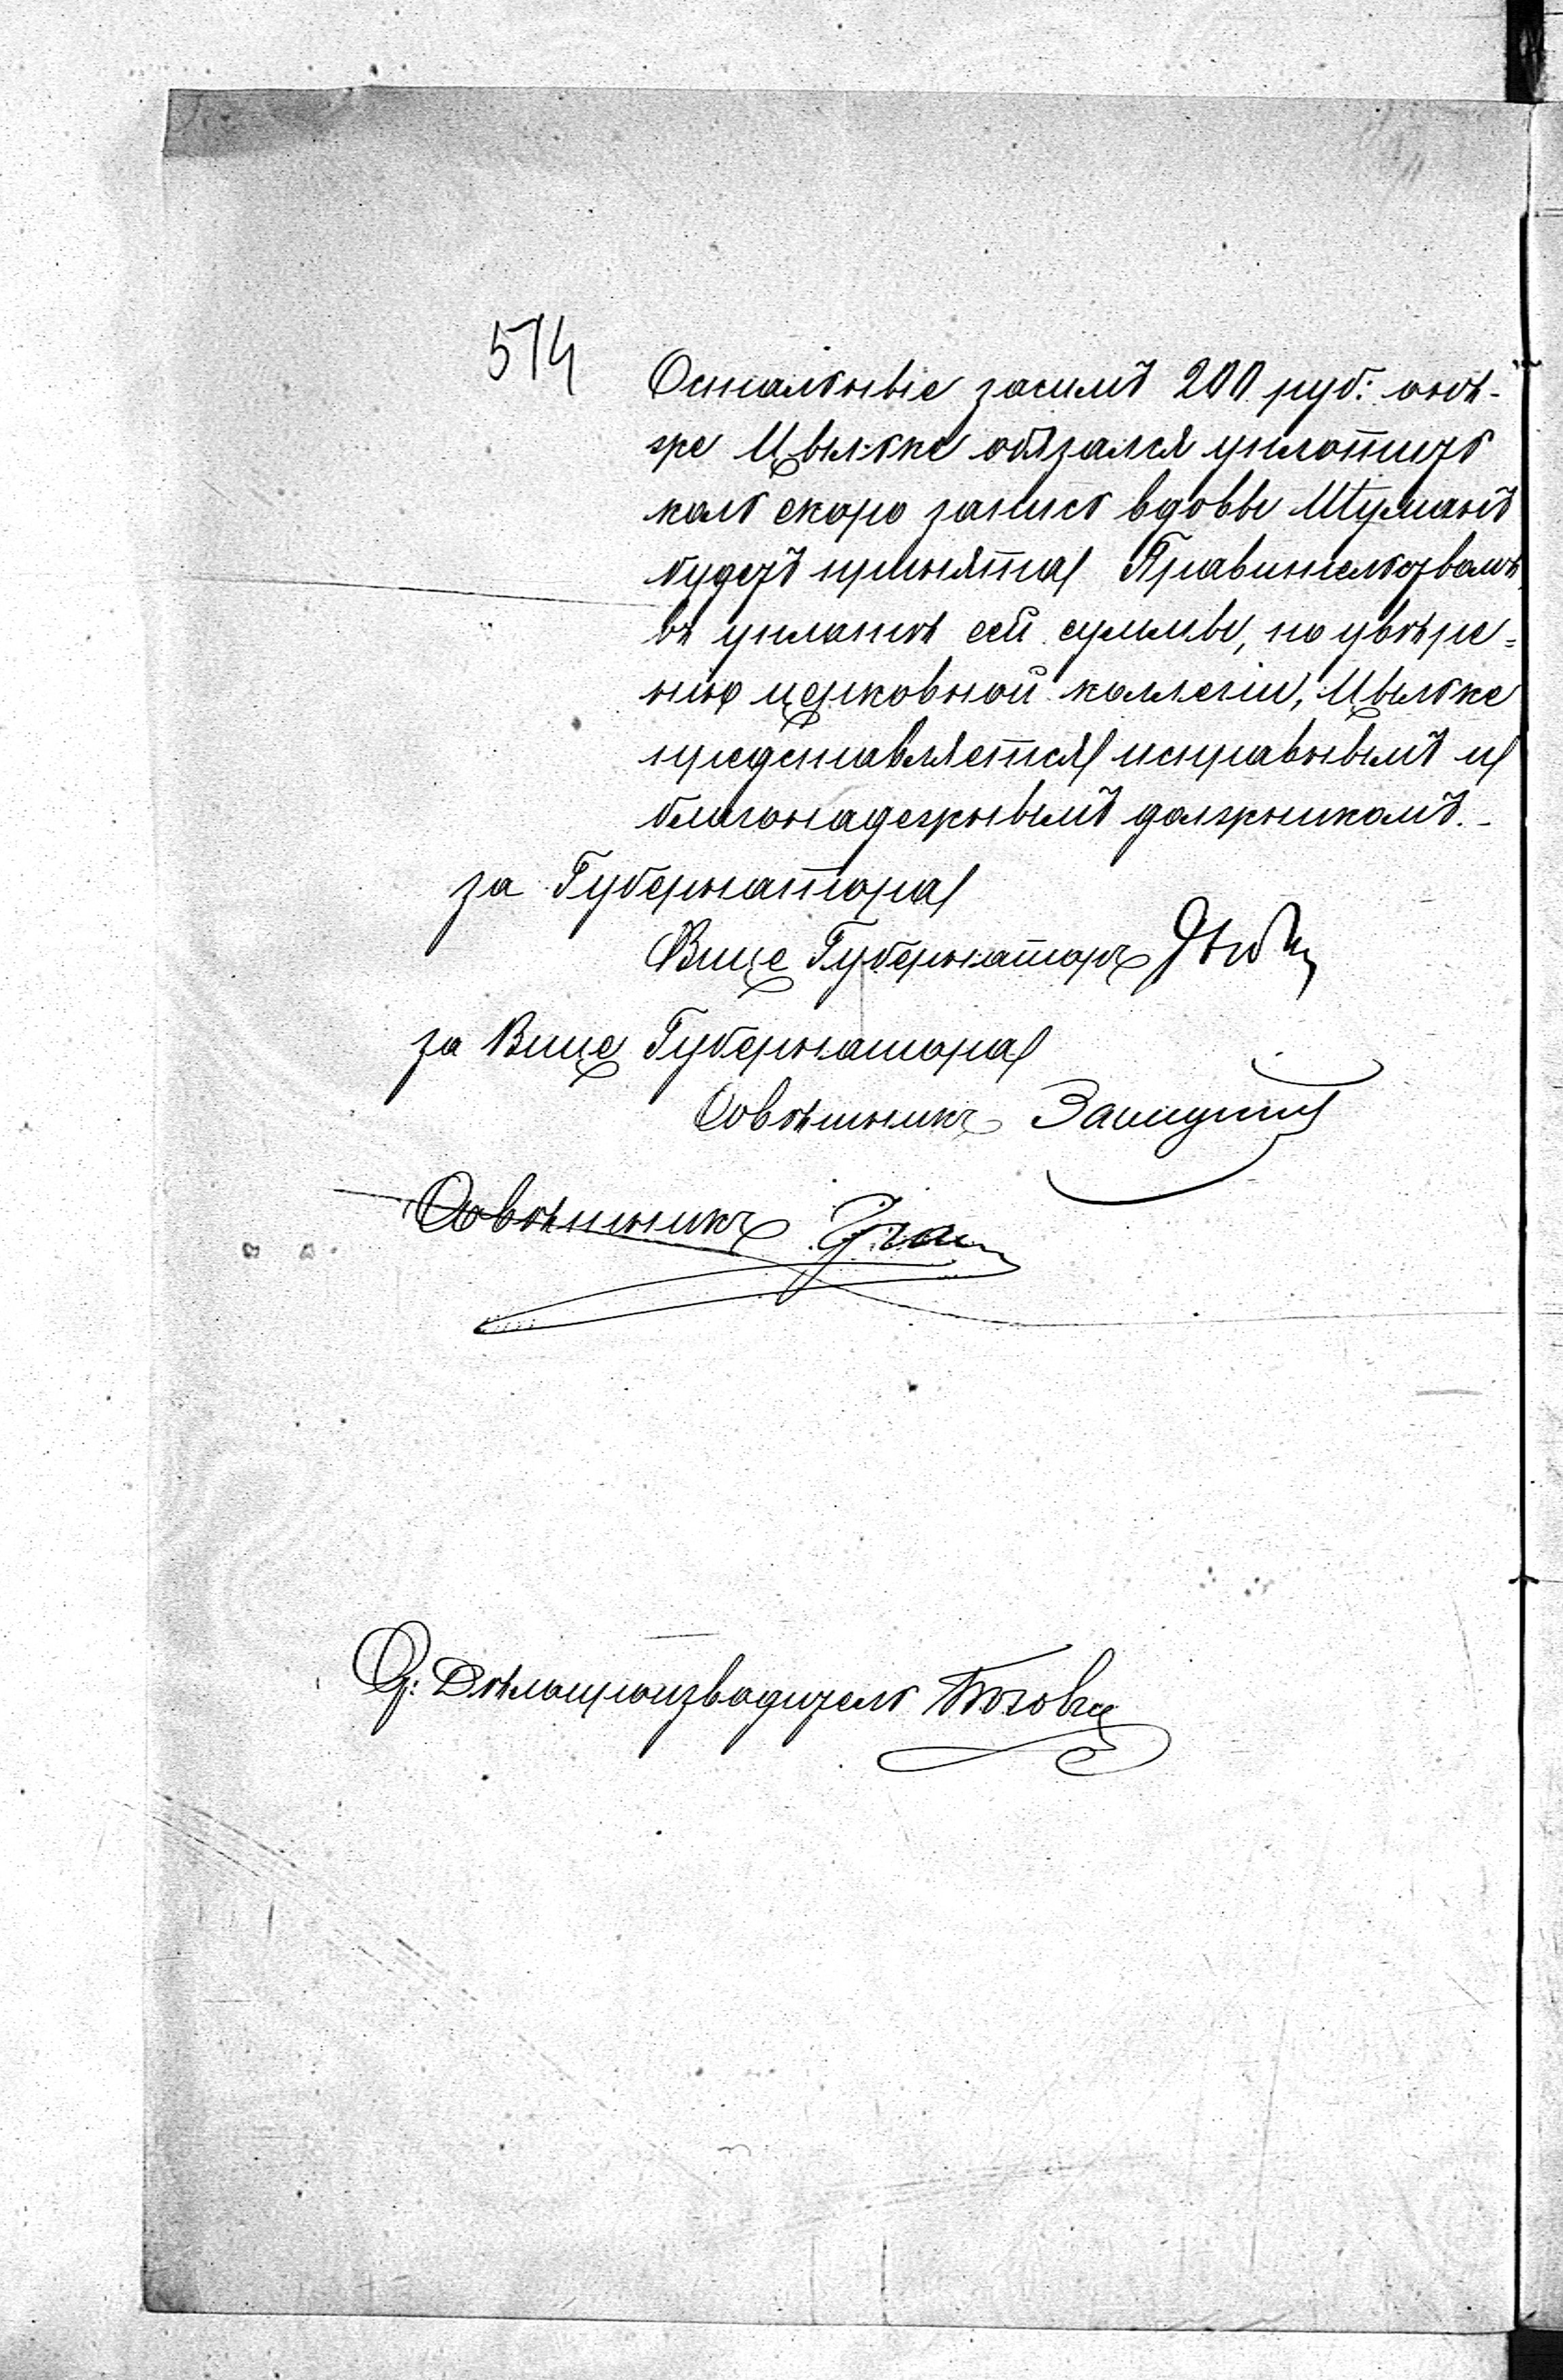 574
Остальные засимъ 200 руб: онъ-
же Цвылке обязался уплотить
коль скоро запись вдовы Штуманъ
будетъ принята Правительствомъ
въ уплатѣ сей суммы, по увѣре=
нію церковной коллегіи, Цвылке
представляется исправнымъ и
благонадежнымъ должникомъ.-
за Губернатора
Вице Губернаторъ
за Вице Губернатора
Совѣтникъ
Совѣтникъ
Дѣлопроизводитель